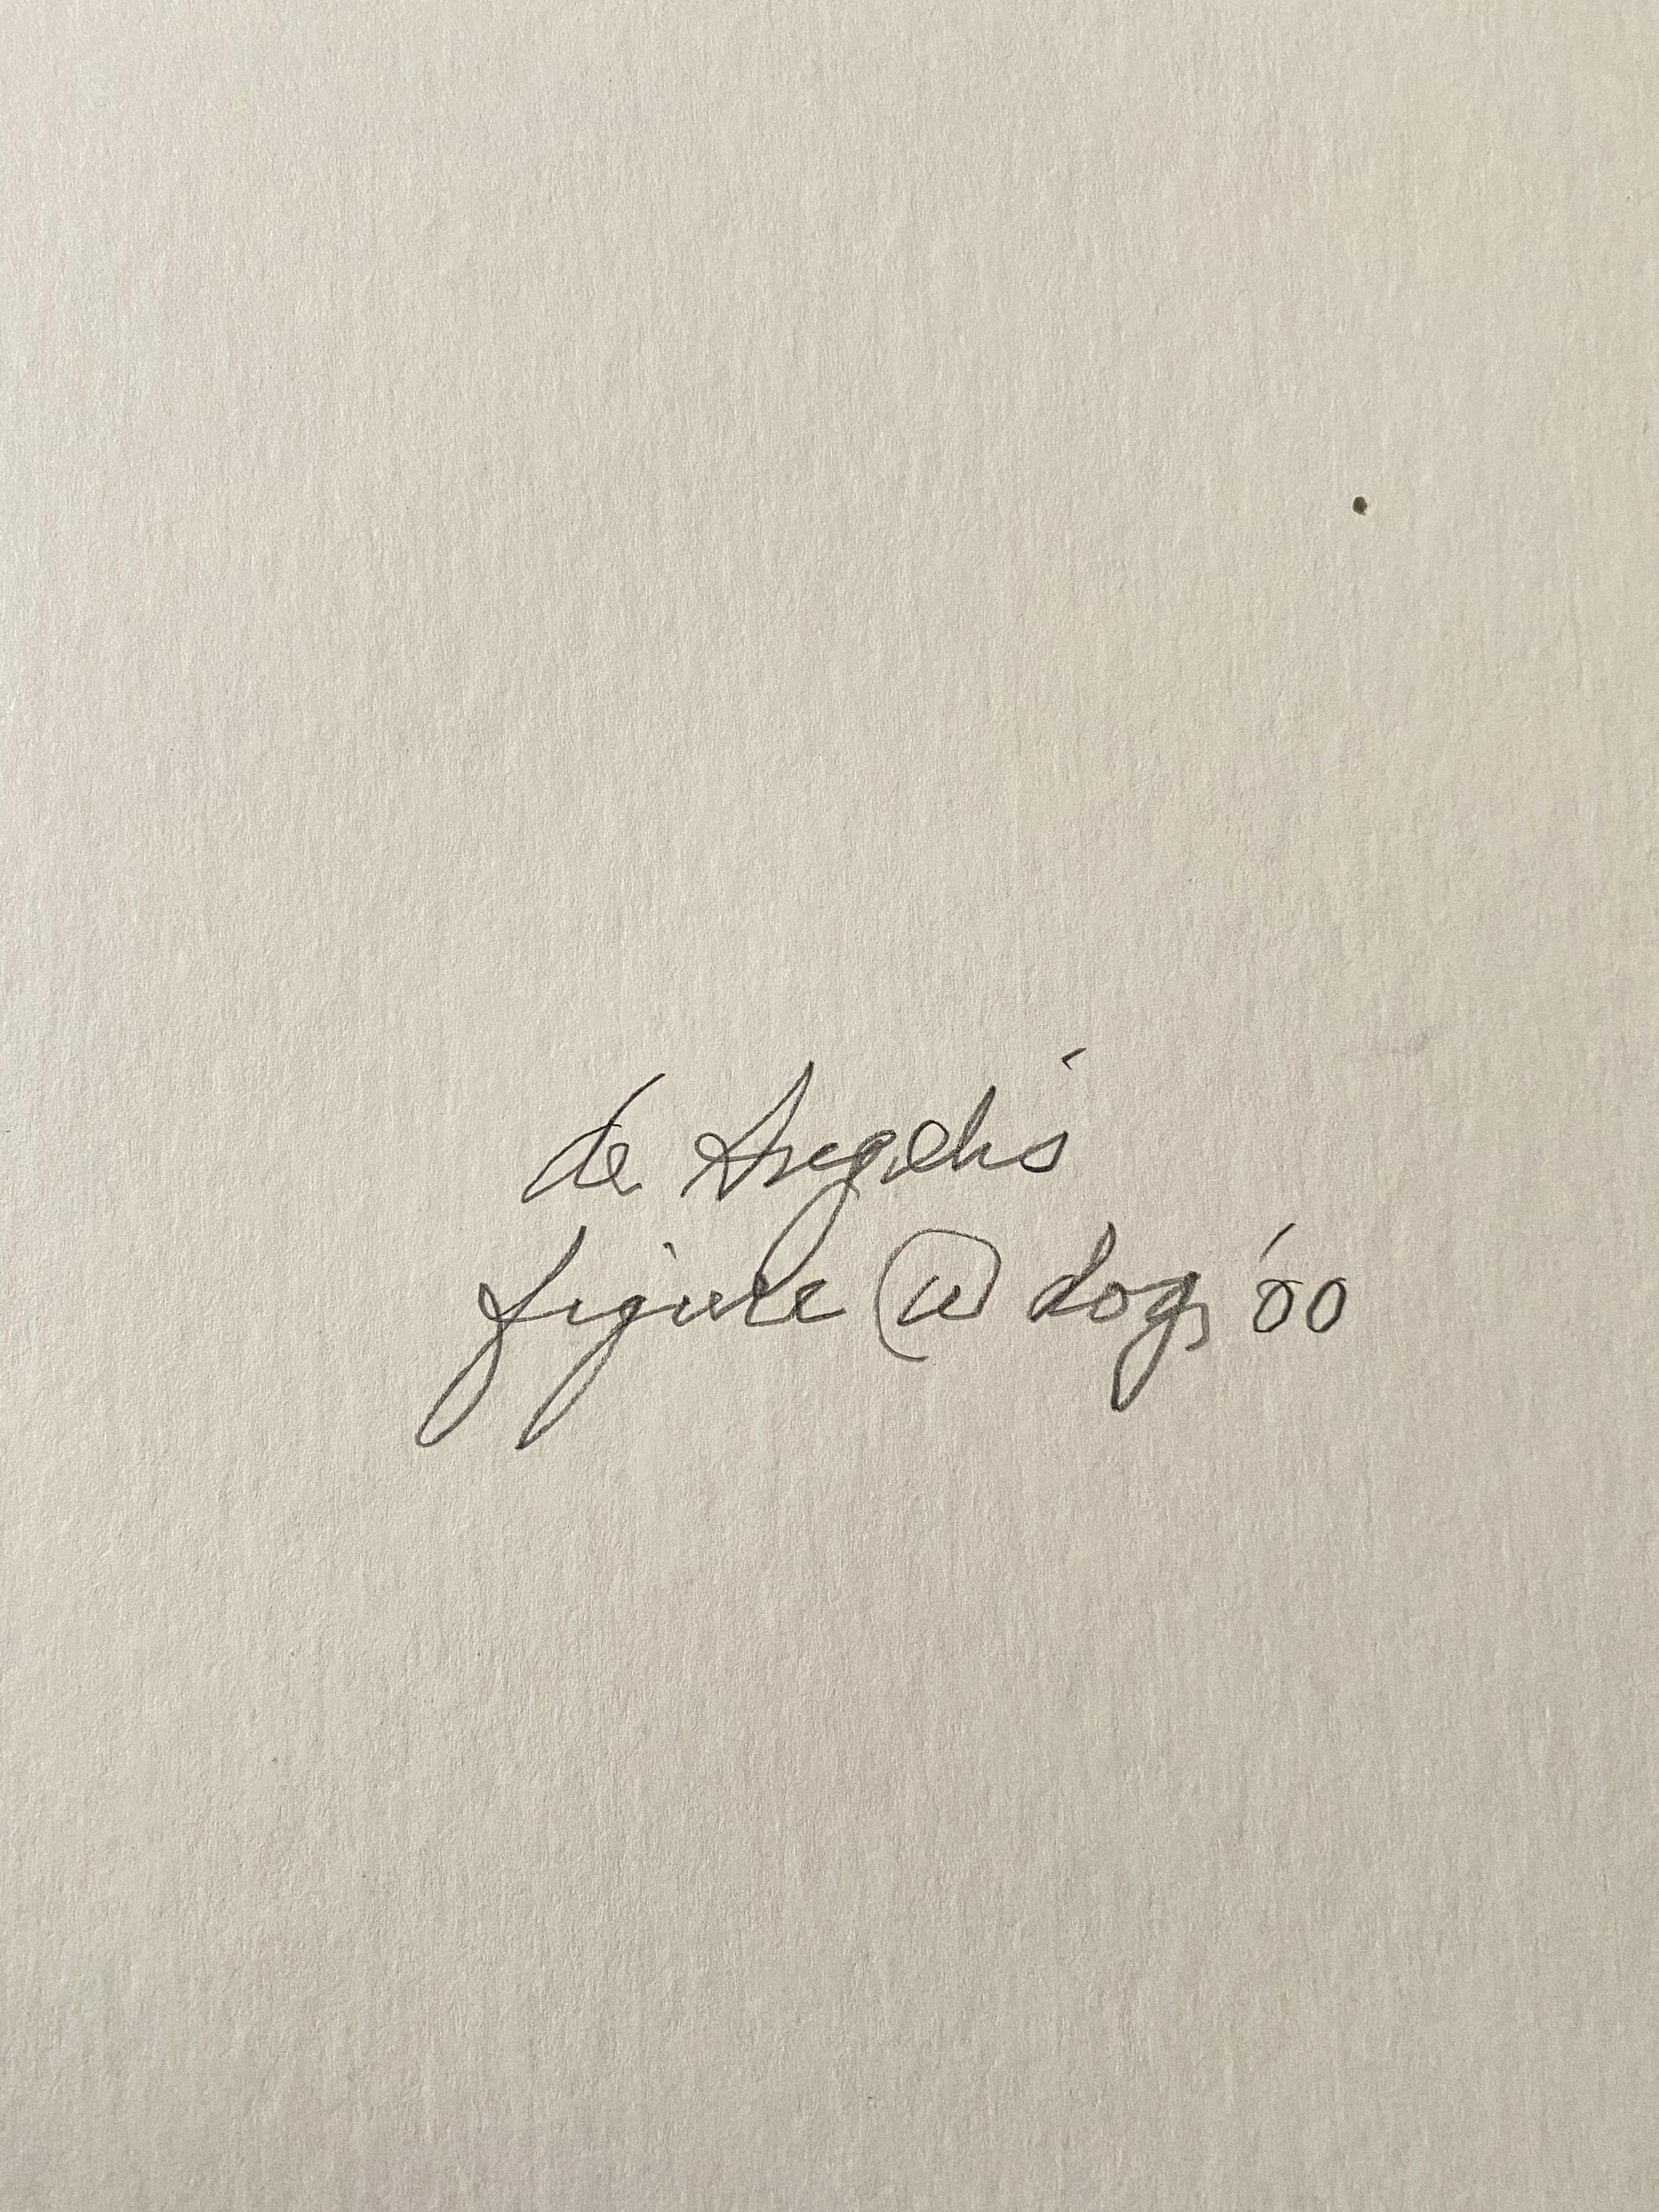 de Angelis
figure ⓦ dogs '00